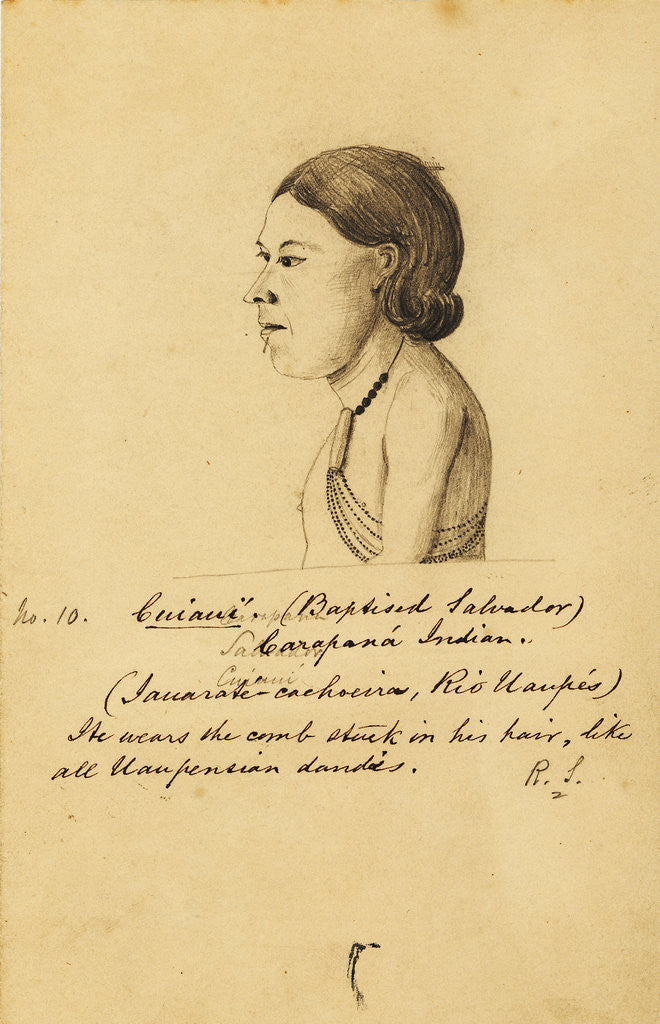 No. 10. Cuiauí. (Baptised Salvador)
Carapaná
Carapaná Indian.
Salvador
Cuiauí
(Jauarate-cachoeira, Rio Uaupés)
He wears the comb stuck in his hair, like
all Uaupensian dandies.
R. S.